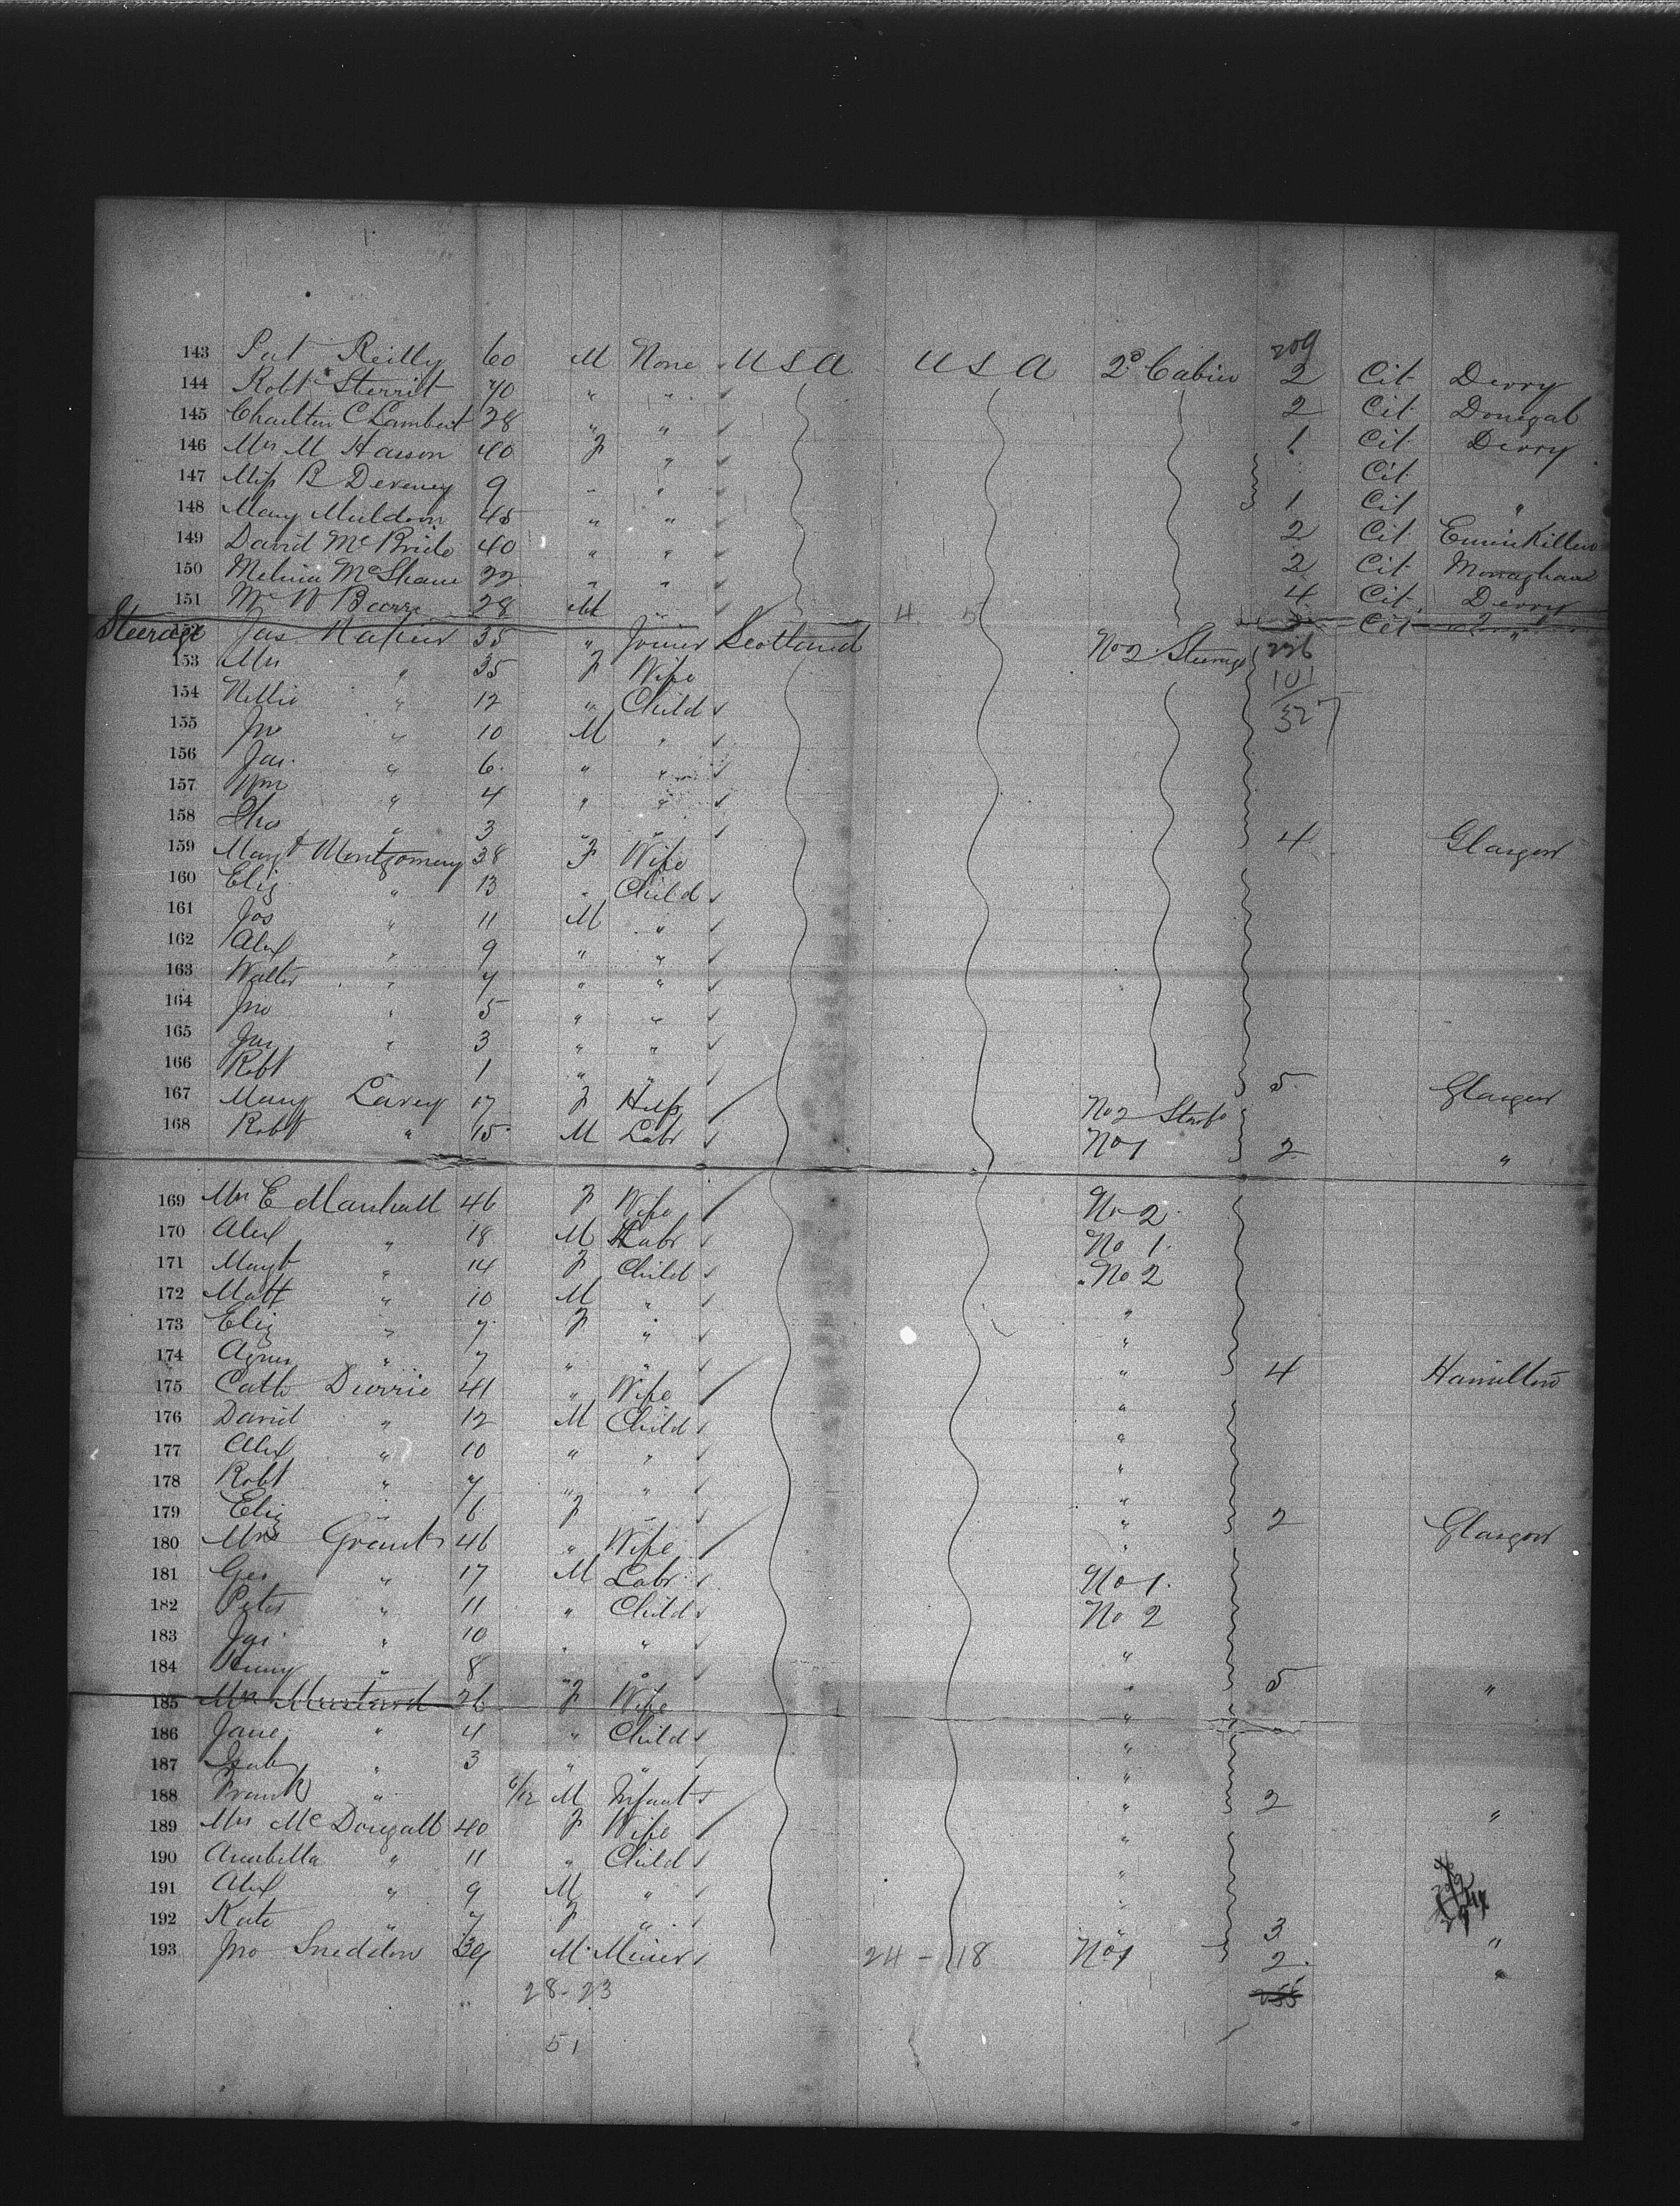 209
143 Pat Reilly 60 M None USA USA 2º Cabin 2 Cit Derry
144 Robt Sterrit 70 " " 2 Cit Donegal
145 Charlton C Lambert 28 " " 1 Cit Derry
146 Mrs M Hasson 40 F " Cit
147 Miss B Deveney 9 " " 1 Cit "
148 Mary Muldoon 45 " " 2 Cit Enniskillen
149 David McBride 40 " " 2 Cit Monaghan
150 McShane 22 " " 4 Cit Derry
151 Mr W Barr 28 M " 4 5 Cit "
Steerage Jas 35 " Joiner Scotland No 2 Steerage 226
153 Mrs " 35 F Wife 101
154 Nellie " 12 " Child 327
155 Jno " 10 M "
156 Jas. " 6 " "
157 Wm " 4 " "
158 Thos " 3 " " 4 Glasgow
159 Margt Montgomery 38 F Wife
160 Eliz " 13 " Child
161 Jos " 11 M "
162 Alex " 9 " "
163 Walter " 7 " "
164 Jno " 5 " "
165 Jas " 3 " "
166 Robt 1 " " 5 Glasgow
167 Mary Lavey 17 F Help No 2 Starb
168 Robt " 15 M Labr No 1 2 "
169 Mrs E Marshall 46 F Wife No 2
170 Alex " 18 M Labr No 1
171 Margt " 14 F Child No 2
172 Matt " 10 M " "
173 Eliz " 7 F " "
174 Agnes " 7 " " " 4 Hamilton
175 Cath Durrie 41 " Wife "
176 David " 12 M Child "
177 Alex " 10 " " "
178 Robt " 7 " " "
179 Eliz " 6 F " " 2 Glasgow
180 Mrs Grant 46 " Wife "
181 Geo " 17 M Labr No 1
182 Peter " 11 " Child No 2
183 Jas " 10 " " "
184 Henry " 8 " " " 5 "
185 Mrs Mustard 26 F Wife "
186 Jane " 4 " Child "
187 Isab " 3 " " "
188 Frank " 6/12 M Infant " 2 "
189 Mrs McDougall 40 F Wife "
190 Arabella " 11 " Child "
191 Alex " 9 M " "
192 Kate " 7 F " " 3 "
193 Jno Sneddon 39 M Miner 24 - 18 No 1 2 "
28-23 255
51